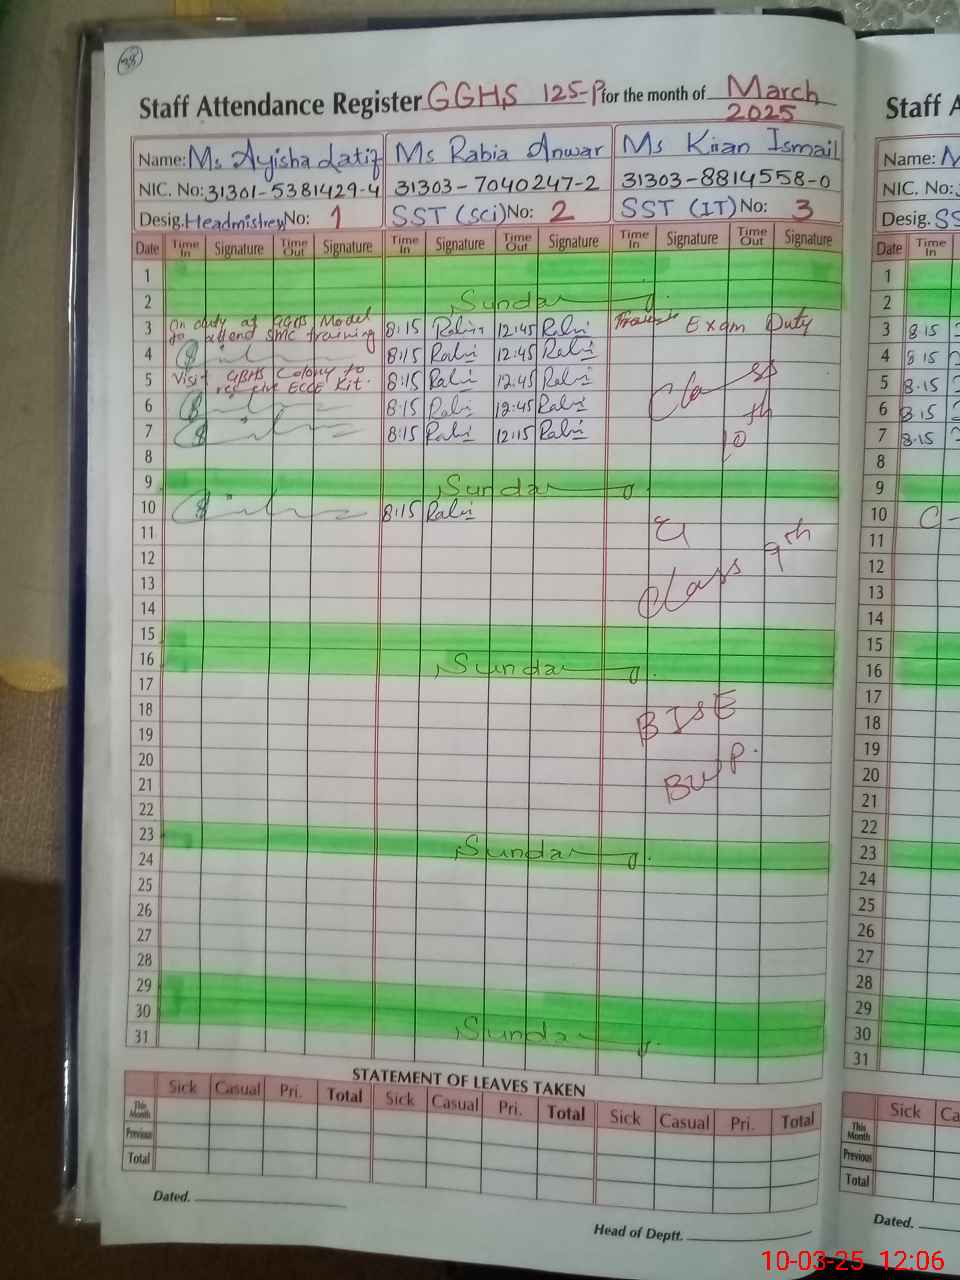 38
Staff Attendance Register GGHS 125-P for the month of March
2025
Name: Ms Ayisha Latif Ms Rabia Anwar Ms Kiran Ismail
NIC. No: 31301-5381429-4 31303-7040247-2 31303-8814558-0
Desig. Headmistress No: 1 SST (Sci) No: 2 SST (IT) No: 3
Date Time In Signature Time Out Signature Time In Signature Time Out Signature Time In Signature Time Out Signature
1
2 Sunday
3 On duty at GGHS Model to attend SMC training 8:15 Rabia 12:45 Rabi Exam Duty
4 8:15 Rabi 12:45 Rabi
5 Visit GBHS Colony to receive ECCE Kit. 8:15 Rabi 12:45 Rabi Class
6 8:15 Rabi 12:45 Rabi
7 8:15 Rabi 12:15 Rabi 10th
8
9 Sunday
10 8:15 Rabi
11
12 Class 9th
13
14
15
16 Sunday
17
18 BISE
19
20 BWP.
21
22
23 Sunday
24
25
26
27
28
29
30 Sunday
31
STATEMENT OF LEAVES TAKEN
Sick Casual Pri. Total Sick Casual Pri. Total Sick Casual Pri. Total
This Month
Previous
Total
Dated.
Head of Deptt.
Staff A
Name: M
NIC. No:
Desig. SS
Date Time In
1
2
3 8:15
4 8:15
5 8:15
6 8:15
7 8:15
8
9
10 C
11
12
13
14
15
16
17
18
19
20
21
22
23
24
25
26
27
28
29
30
31
Sick Ca
This Month
Previous
Total
Dated.
10-03-25 12:06